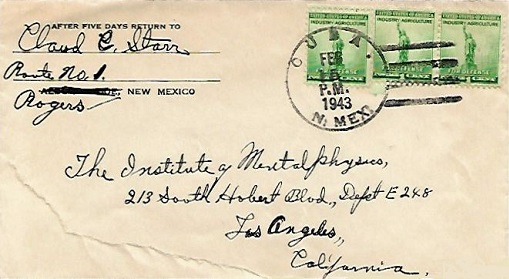 AFTER FIVE DAYS RETURN TO
Claud C. Starr
Route No. 1.
NEW MEXICO
Rogers
CUBA.
FEB
P.M.
1943
N. MEX.
UNITED STATES OF AMERICA
INDUSTRY AGRICULTURE
FOR DEFENSE
UNITED STATES OF AMERICA
INDUSTRY AGRICULTURE
UNITED STATES OF AMERICA
INDUSTRY AGRICULTURE
FOR DEFENSE
The Institute of Mentalphysics,
213 South Hobart Blvd., Dept E248
Los Angeles,
California,